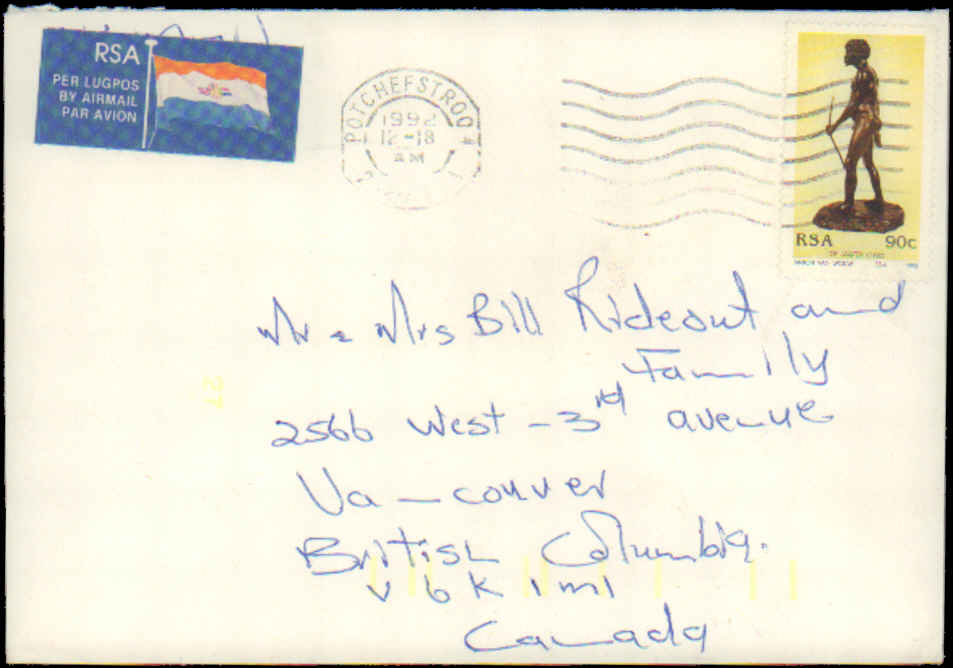 RSA
PER LUGPOS
BY AIRMAIL
PAR AVION
POTCHEFSTROO
1992
12-18
AM
RSA 90c
Mr & Mrs Bill Rideout and
Family
2566 West - 3rd avenue
Vancouver
British Columbia.
V6K 1M1
Canada